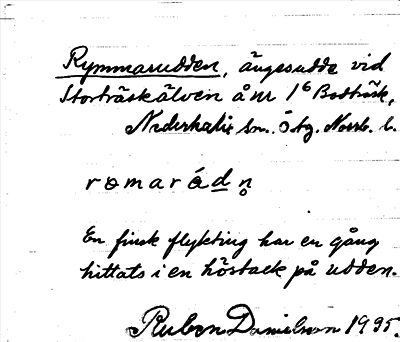 Rymmarudden, ängesudde vid
Storträskälven å nr 1⁶ Bodträsk,
Nederkalix sn. ö tg. Norrb. l.
romarúdn̥
En finsk flykting har en gång
hittats i en höstack på udden.
Ruben Danielson 1935.